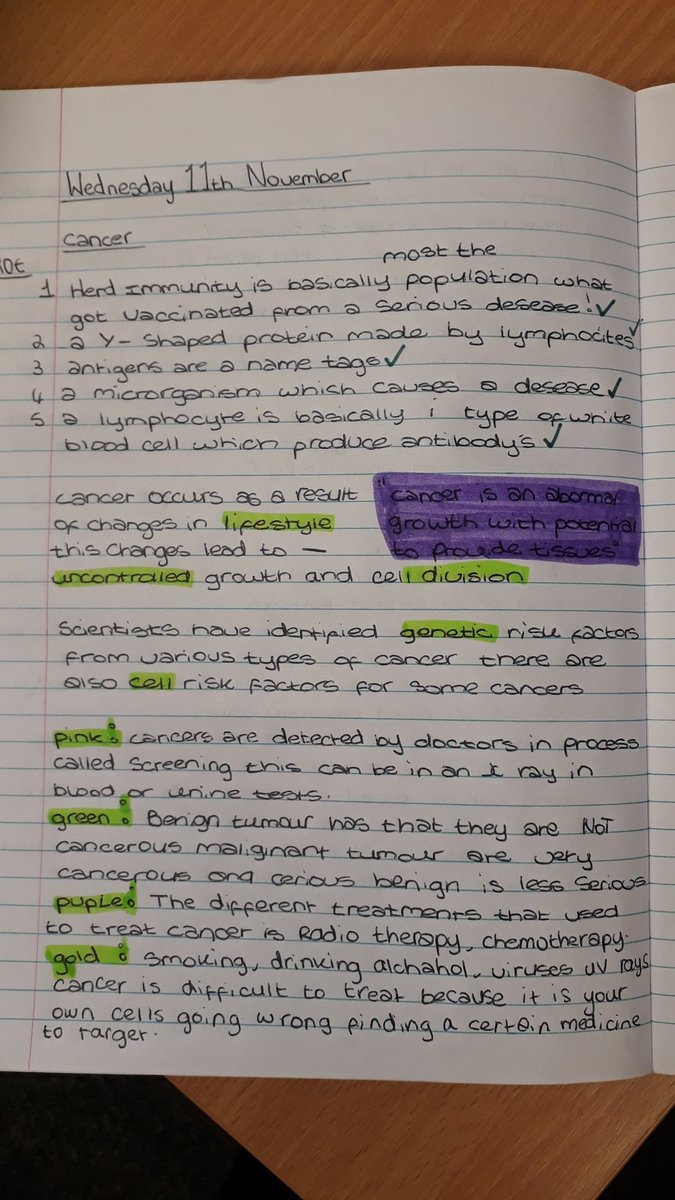 Wednesday 11th November
cancer
most the
1 Herd Immunity is basically population what
got vaccinated from a serious desease! ✓
2 a Y- shaped protein made by lymphocites ✓
3 antigens are a name tags ✓
4 a microrganism which causes a desease ✓
5 a lymphocyte is basically i type of white
blood cell which produce antibody's ✓
cancer occurs as a result
of changes in lifestyle
this changes lead to —
uncontrolled growth and cell division
"cancer is an abormal
growth with potential
to provide tissues"
Scientists have identified genetic risk factors
from various types of cancer there are
also cell risk factors for some cancers
pink: cancers are detected by doctors in process
called screening this can be in an X ray in
blood or urine tests.
green: Benign tumour has that they are NOT
cancerous malignant tumour are very
cancerous and cerious benign is less serious
puple: The different treatments that used
to treat cancer is Radio therapy, chemotherapy.
gold: smoking, drinking alchahol, viruses uv rays
cancer is difficult to treat because it is your
own cells going wrong finding a certain medicine
to rarger.